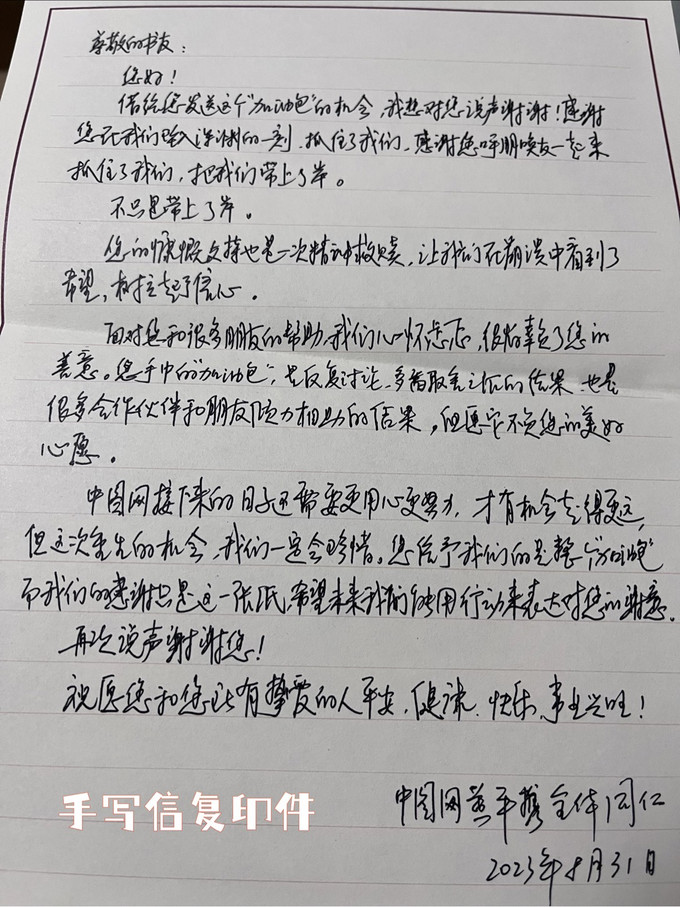 尊敬的书友：
您好！
借给您发送这个“加油包”的机会，我想对您说声谢谢！感谢
您在我们坠入深渊的一刻，抓住了我们，感谢您呼朋唤友一起来
抓住了我们，把我们带上了岸。
不只是带上了岸。
您的慷慨支持也是一次精神救赎，让我们在崩溃中看到了
希望，树立起了信心。
面对您和很多朋友的帮助，我们心怀忐忑，很怕辜负了您的
善意。您手中的“加油包”，是反复讨论、多番取舍之后的结果，也是
很多合作伙伴和朋友倾力相助的结果，但愿它不负您的美好
心愿。
中图网接下来的日子还需要更用心更努力，才有机会走得更远，
但这次重生的机会，我们一定会珍惜。您给予我们的是整个“加油包”
而我们的感谢只是这一张纸，希望未来我们能用行动来表达对您的谢意。
再次说声谢谢您！
祝愿您和您所有挚爱的人平安、健康、快乐、事业兴旺！
中图网黄平携全体同仁
2023年8月31日
手写信复印件